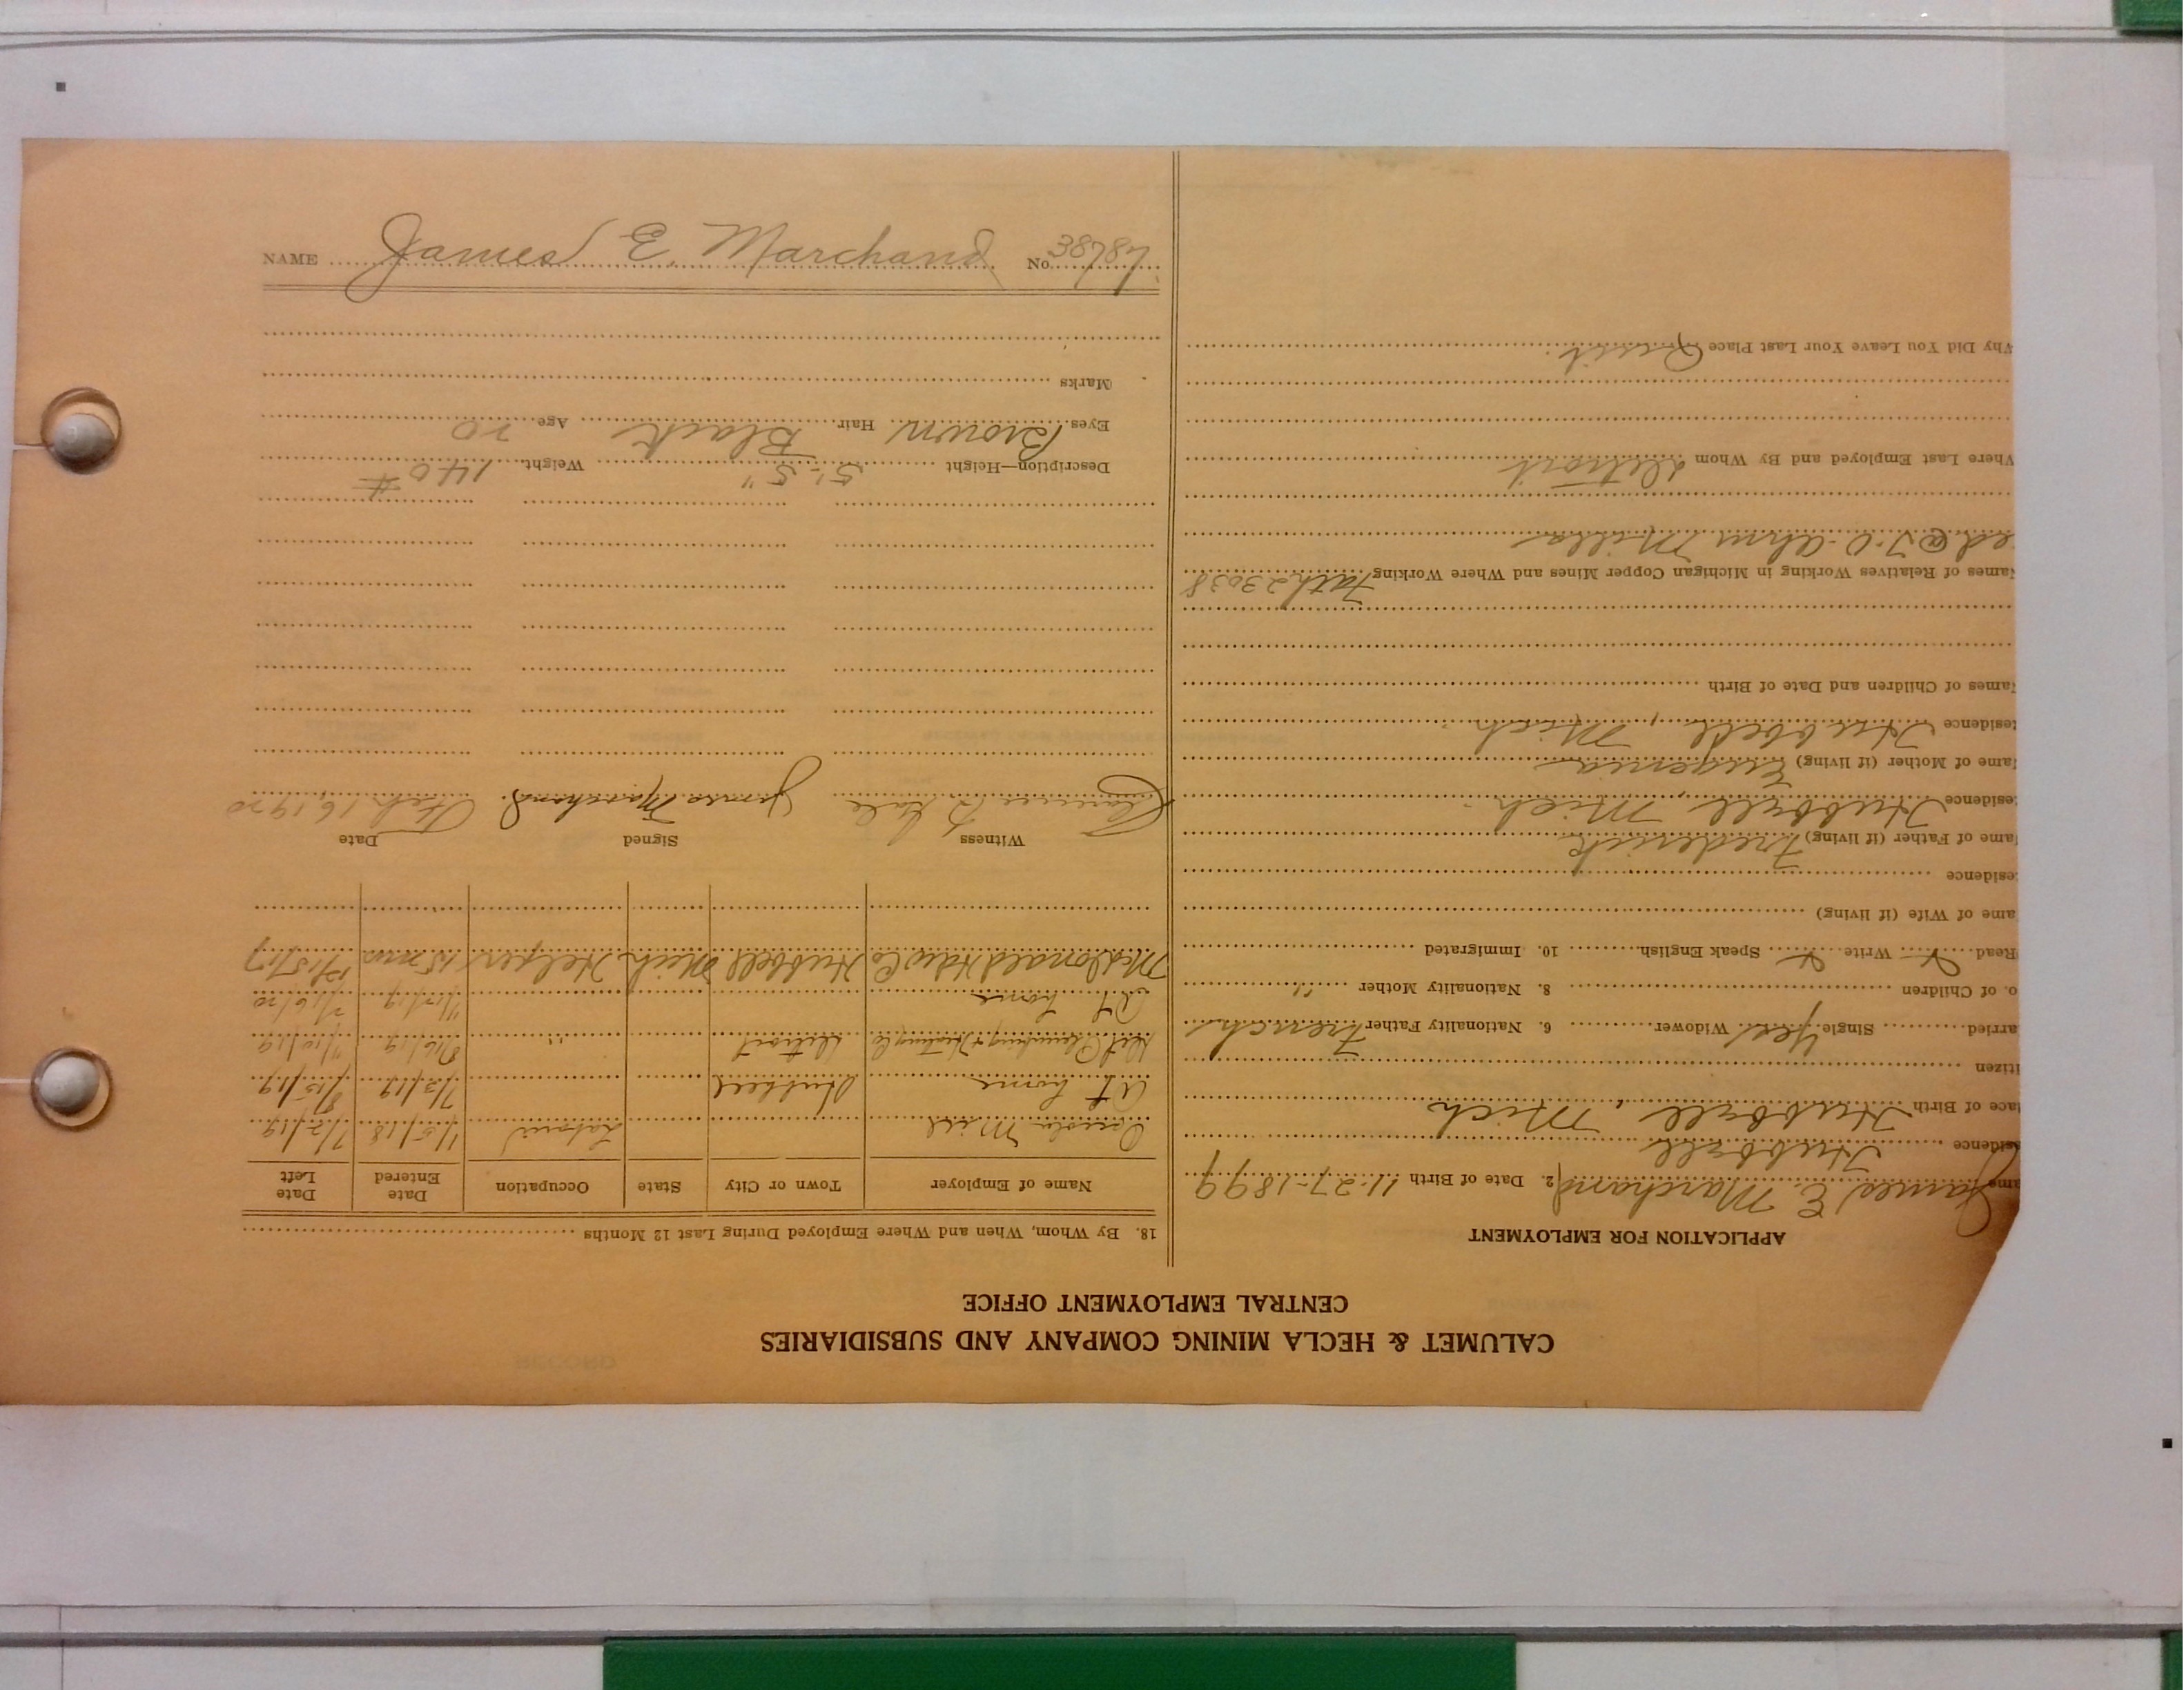 CALUMET & HECLA MINING COMPANY AND SUBSIDIARIES
CENTRAL EMPLOYMENT OFFICE
APPLICATION FOR EMPLOYMENT
ame James E. Marchand 2. Date of Birth 11-27-1899
sidence Hubbell
lace of Birth Hubbell, Mich
itizen
arried Single Yes Widower 6. Nationality Father French
o. of Children 8. Nationality Mother "
Read Write Speak English 10. Immigrated
ame of Wife (if living)
esidence
ame of Father (if living) Frederick
esidence Hubbell, Mich.
ame of Mother (if living) Eugenia
esidence Hubbell, Mich.
ames of Children and Date of Birth
ames of Relatives Working in Michigan Copper Mines and Where Working Fath 23038
Mills
Where Last Employed and By Whom Detroit
Why Did You Leave Your Last Place Quit.
18. By Whom, When and Where Employed During Last 12 Months
Name of Employer Town or City State Occupation Date Entered Date Left
Osceola Mill Laborer 1/5/18 7/2/19
At home Hubbell 7/3/19 8/15/19
Det. Plumbing & Heating Co Detroit " 8/16/19 11/10/19
At home 11/12/19 2/16/20
McDonald Hdw Co Hubbell Mich Helper 15 mos 12/15/17
Witness Signed Date
Clarence James Marchand. Feb. 16, 1920
Description—Height 5'-5" Weight 140 #
Eyes Brown Hair Black Age 20
Marks
NAME James E. Marchand No. 38787